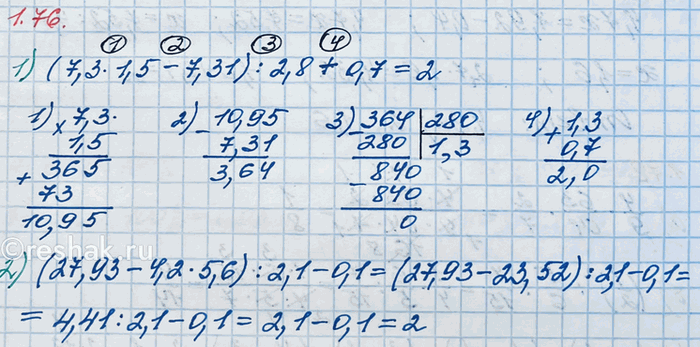 1.76.
① ② ③ ④
1) (7,3·1,5-7,31):2,8+0,7=2
1) × 7,3· 2) - 10,95 3) - 364 | 280 4) + 1,3
1,5 7,31 280 1,3 0,7
+ 365 3,64 840 2,0
73 - 840
10,95 0
© reshak.ru
2) (27,93-4,2·5,6):2,1-0,1=(27,93-23,52):2,1-0,1=
=4,41:2,1-0,1=2,1-0,1=2